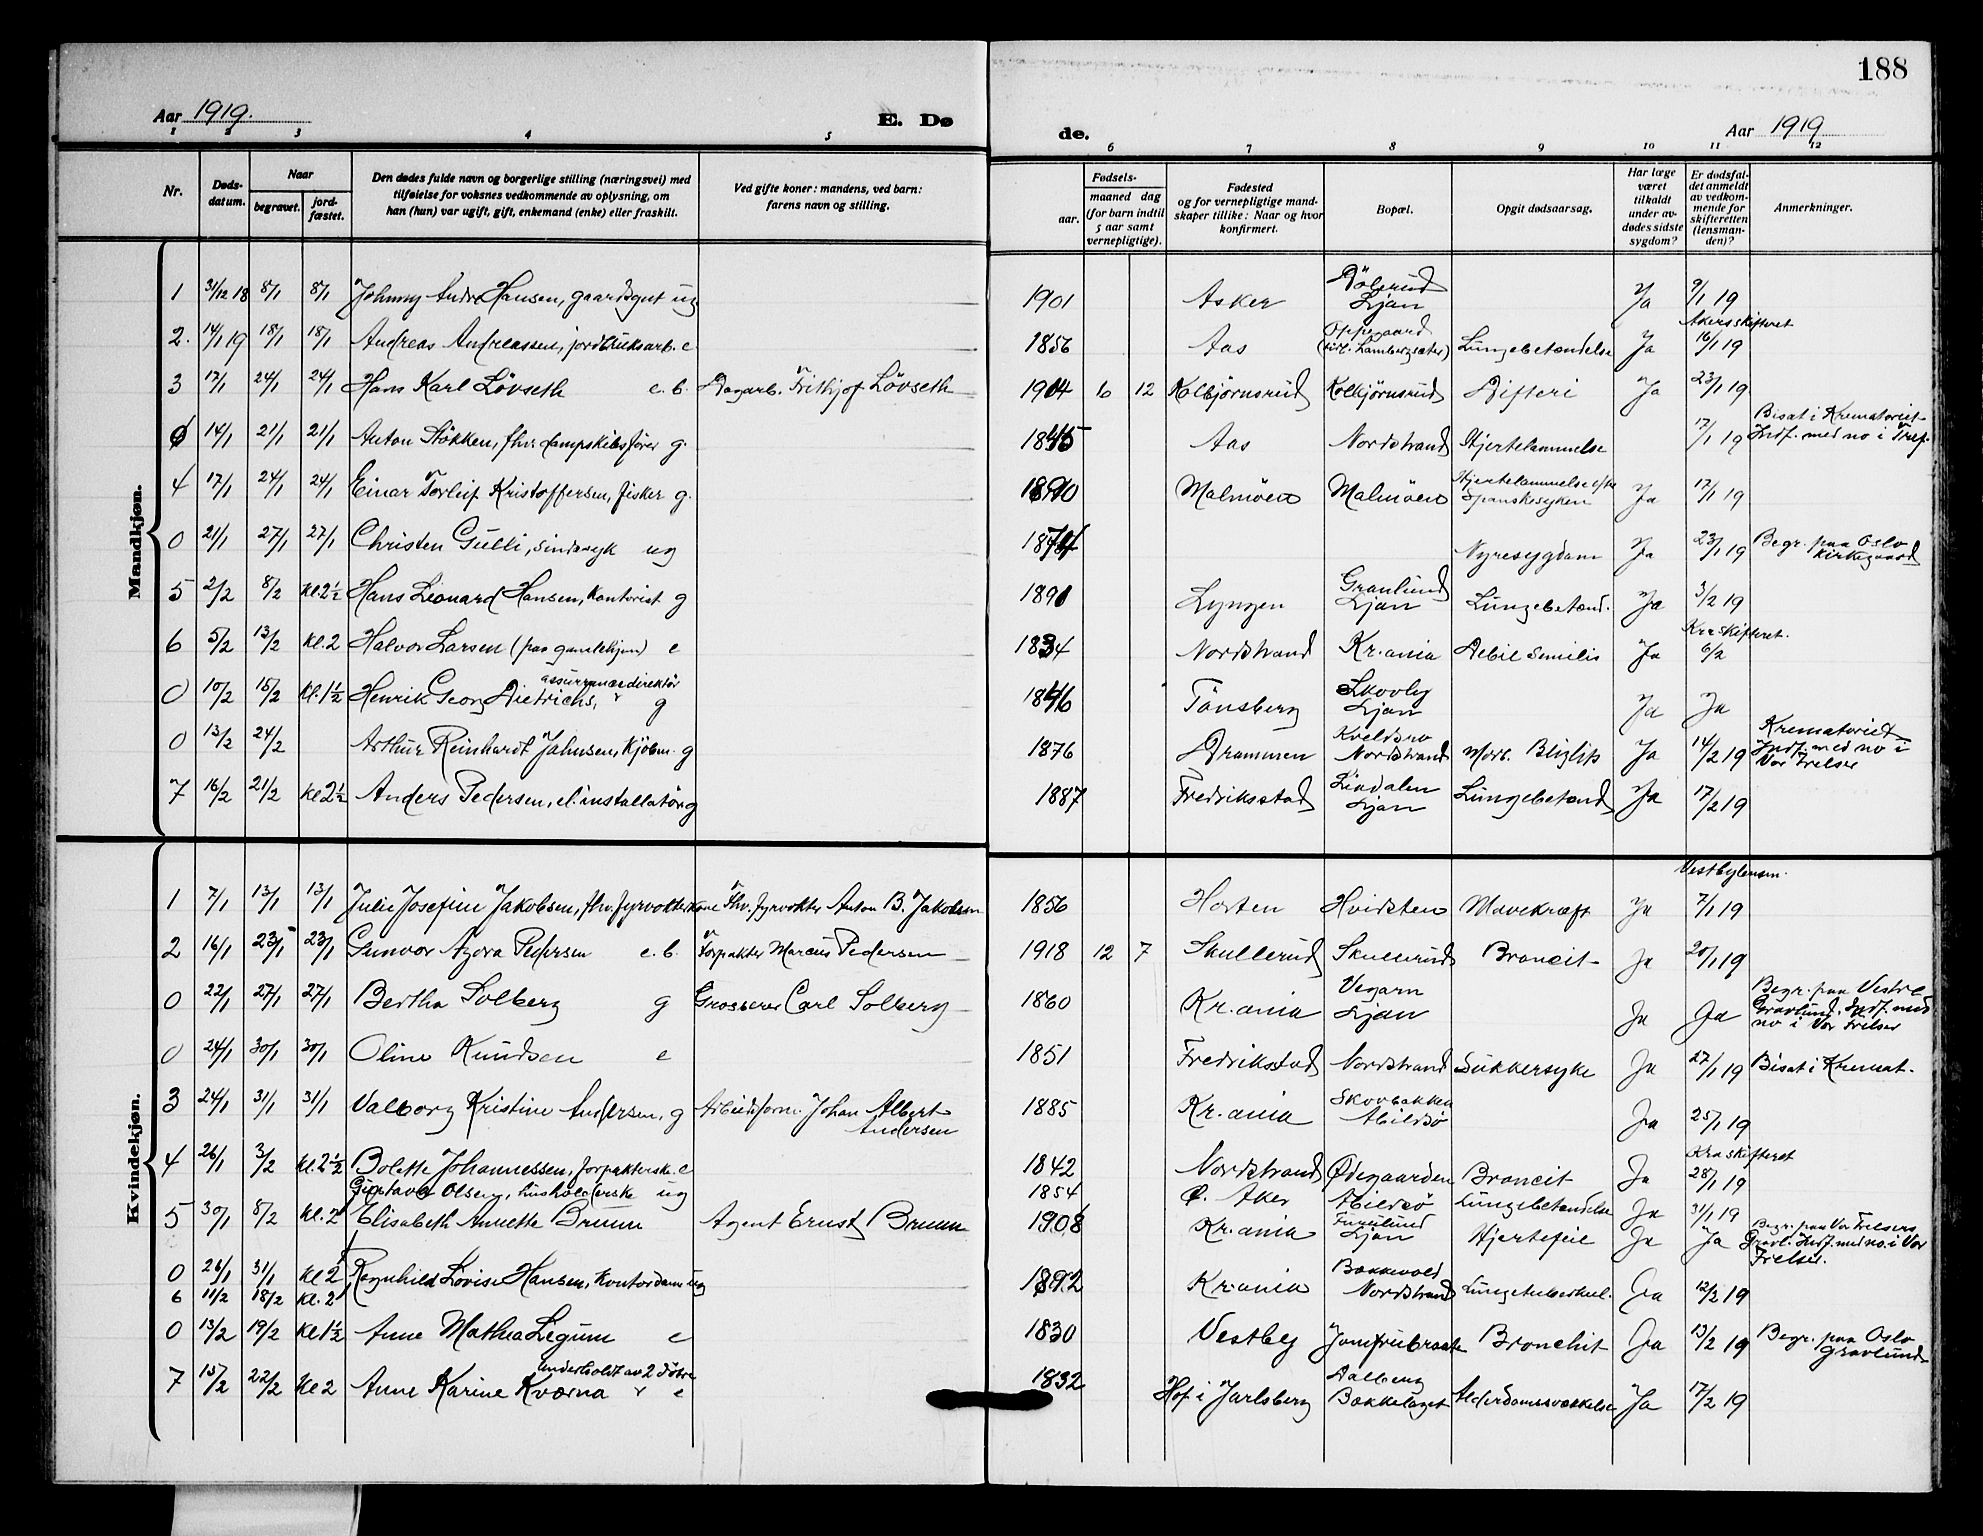 188
Aar 1919. E. Dø de. Aar 1919
1 2 3 4 5 6 7 8 9 10 11 12
Nr. Døds-datum. Naar begravet. jord-fæstet. Den dødes fulde navn og borgerlige stilling (næringsvei) med tilføielse for voksnes vedkommende av oplysning, om han (hun) var ugift, gift, enkemand (enke) eller fraskilt. Ved gifte koner: mandens, ved barn: farens navn og stilling. Fødsels- aar. maaned dag (for barn indtil 5 aar samt vernepligtige). Fødested og for vernepligtige mand-skaper tillike: Naar og hvor konfirmert. Bopæl. Opgit dødsaarsag. Har læge været tilkaldt under av-dødes sidste sygdom? Er dødsfal-det anmeldt av vedkom-mende for skifteretten (lensman-den)? Anmerkninger.
Mandkjøn.
1 31/12 18 8/1 8/1 Johnny Andre Hansen, gaardsgut ug 1901 Asker Dølerud Ljan Ja 9/1 19
2. 14/1 19 18/1 18/1 Andreas Andreassen, jordbruksarb. e 1856 Aas Oppegaard Lungebetændelse Ja Akersskifteret 16/1 19
3 17/1 24/1 24/1 Hans Karl Løvseth e. b. Dagarb. Frithjof Løvseth 1904 6 12 Kolbjørnsrud Kolbjørnsrud Difteri Ja 23/1 19
0 14/1 21/1 21/1 Anton Støkken, fhv. dampskibsfører g. 1845 Aas Nordstrand Hjertelammelse 17/1 19 Bisat i Krematoriet Indf. med no i Tref.
4 17/1 24/1 24/1 Einar Torleif Kristoffersen, fisker g. 1890 Malmøen Malmøen Hjertelammelse efter Spanskesyken Ja 17/1 19
0 21/1 27/1 27/1 Christen Gulli, sindssyk ug 1874 Nyresygdom Ja 23/1 19 Begr. paa Oslo kirkegaard
5 2/2 8/2 Kl. 2½ Hans Leonard Hansen, kontorist g 1891 Lyngen Granlund Ljan Lungebetænd. Ja 3/2 19
6 5/2 13/2 Kl. 2 Halvor Larsen (paa gamlehjem) e 1834 Nordstrand Kr.ania Debil senilis Ja Kra skifteret. 6/2
0 10/2 15/2 Kl. 1½ Henrik Georg Dietrichs, assurancedirektør g 1846 Tønsberg Skovly Ljan Ja Ja
0 13/2 24/2 Arthur Reinhardt Johnsen, kjøbm. g 1876 Drammen Kveldsro Nordstrand Morb. Brightii Ja 14/2 19 Krematoriet Indf. med no i Vor Frelser
7 16/2 21/2 Kl 2½ Anders Pedersen, el. installatør g 1887 Fredriksstad Lindalen Ljan Lungebetænd Ja 17/2 19
Kvindekjøn.
1 7/1 13/1 13/1 Julie Josefine Jakobsen, fhv. fyrvokterkone Fhv. fyrvokter Anton B. Jakobsen 1856 Horten Hvidsten Mavekræft Ja Vestbylensm. 7/1 19
2 16/1 23/1 23/1 Gunvor Azora Pedersen e. b. Forpakter Marcus Pedersen 1918 12 7 Skullerud Skullerud Broncit Ja 20/1 19
0 22/1 27/1 27/1 Bertha Solberg g Grosserer Carl Solberg 1860 Kr.ania Vegarn Ljan Ja Ja Begr. paa Vestre Gravlund. Indf. med no i Vor Frelser
0 24/1 30/1 30/1 Oline Knudsen e 1851 Fredriksstad Nordstrand Sukkersyke Ja 27/1 19 Bisat i Kremat.
3 24/1 31/1 31/1 Valborg Kristine Andersen, g Arbeidsform. Johan Albert Andersen 1885 Kr.ania Skovbakken Abildsø Ja 25/1 19
4 26/1 3/2 Kl. 2½ Bolette Johannessen, forpakterske. e 1842 Nordstrand Ødegaarden Broncit Ja Kra skifteret 28/1 19
Gustava Olsen, husholderske ug 1854 Ø. Aker Abildsø Lungebetændelse Ja 31/1 19
5 30/1 8/2 Kl. 2 Elisabeth Annette Bruun Agent Ernst Bruun 1908 Kr.ania Furulund Ljan Hjertefeil Ja Ja Begr. paa Vor Frelsers Gravl. Indf. med no. i Vor Frelser.
0 26/1 31/1 Kl 2 Ragnhild Lovise Hansen, kontordame ug 1892 Kr.ania Bækkevold Nordstrand Lungetuberkul. Ja 12/2 19
6 11/2 18/2 Kl. 2
0 13/2 19/2 Kl 1½ Anne Mathea Legum e 1830 Vestby Jomfrubraaten Bronchit Ja 13/2 19 Begr. paa Oslo gravlund
7 15/2 22/2 Kl 2 Anne Karine Kværna underholdt av 2 døtre e 1832 Hof i Jarlsberg Dalberg Bækkelaget Alderdomssvækkelse Ja 17/2 19